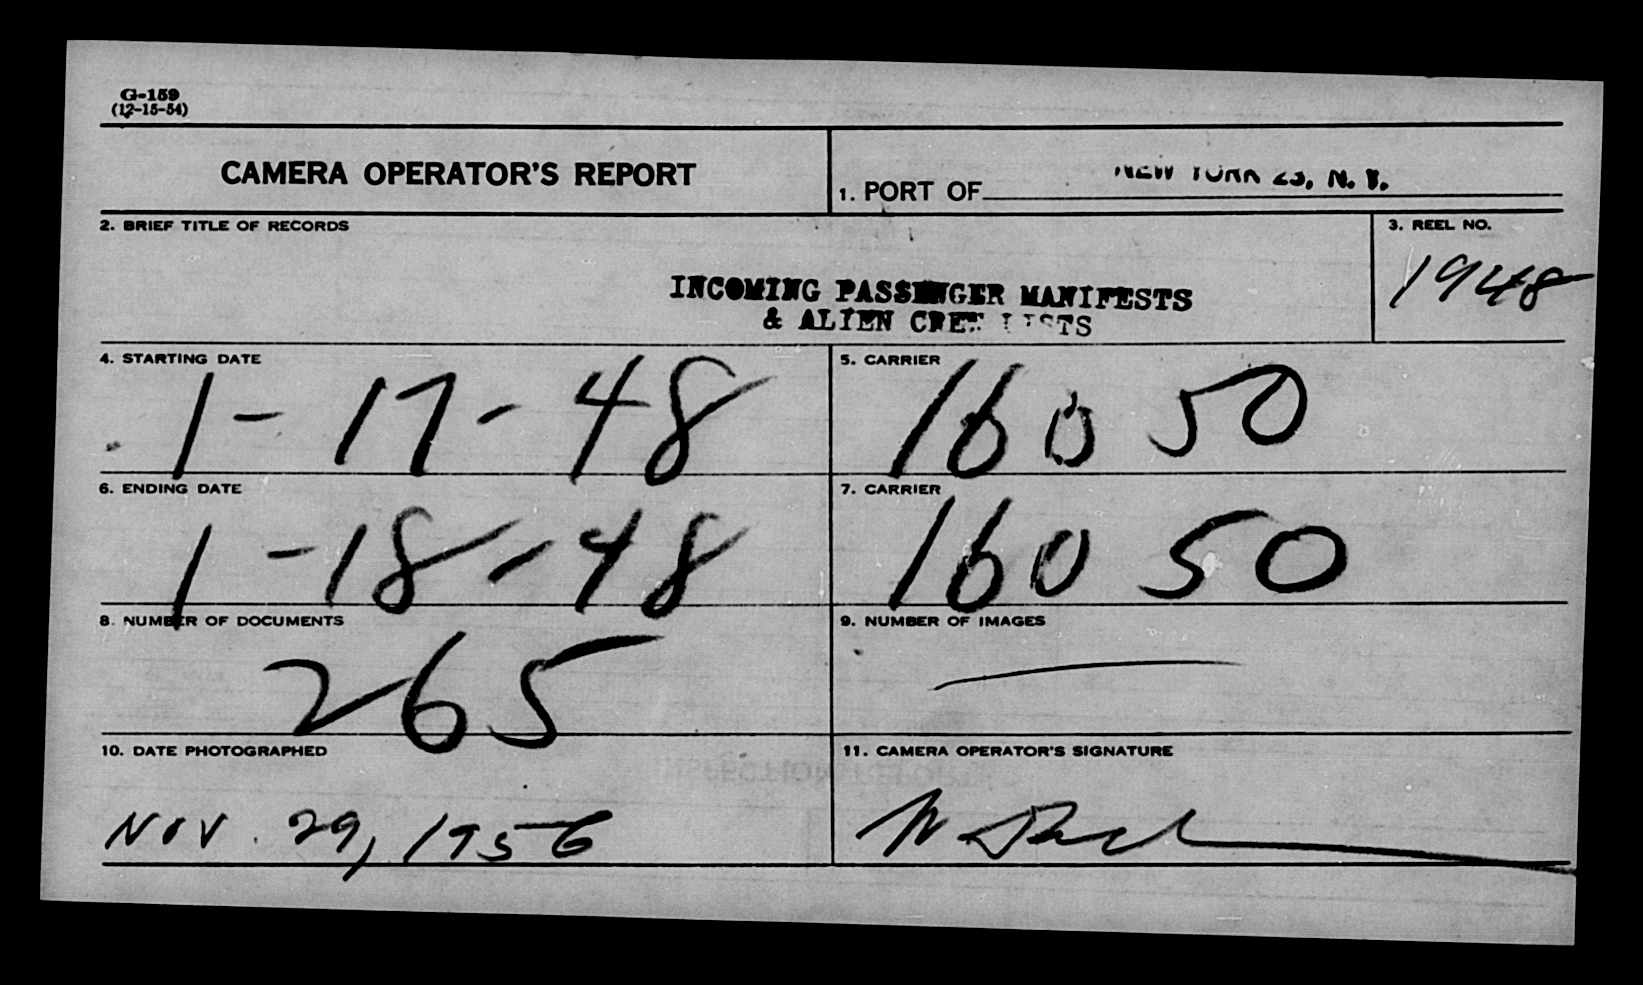 G-159
(12-15-54)
CAMERA OPERATOR'S REPORT
1. PORT OF NEW YORK 23, N. Y.
2. BRIEF TITLE OF RECORDS
3. REEL NO.
1948
INCOMING PASSENGER MANIFESTS
& ALIEN CREW LISTS
4. STARTING DATE
1-17-48
5. CARRIER
16050
6. ENDING DATE
1-18-48
7. CARRIER
16050
8. NUMBER OF DOCUMENTS
265
9. NUMBER OF IMAGES
10. DATE PHOTOGRAPHED
Nov. 29, 1956
11. CAMERA OPERATOR'S SIGNATURE